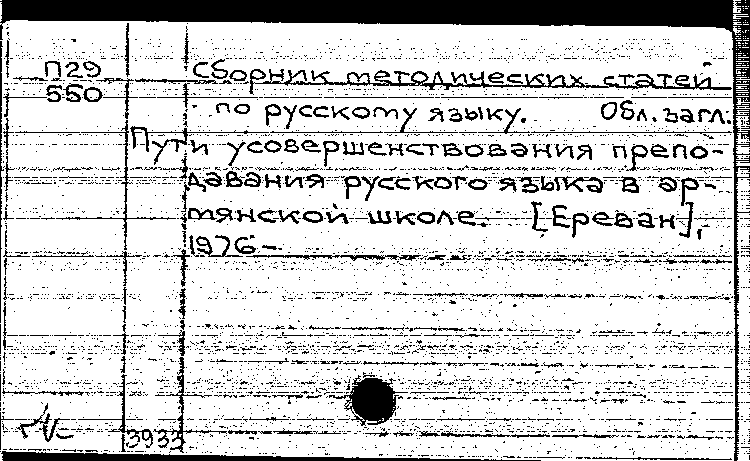 П29
550
Сборник методических статей
по русскому языку. Обл. загл.
Пути усовершенствования препо-
давания русского языка в ар-
мянской школе. [Ереван],
1976-
3933